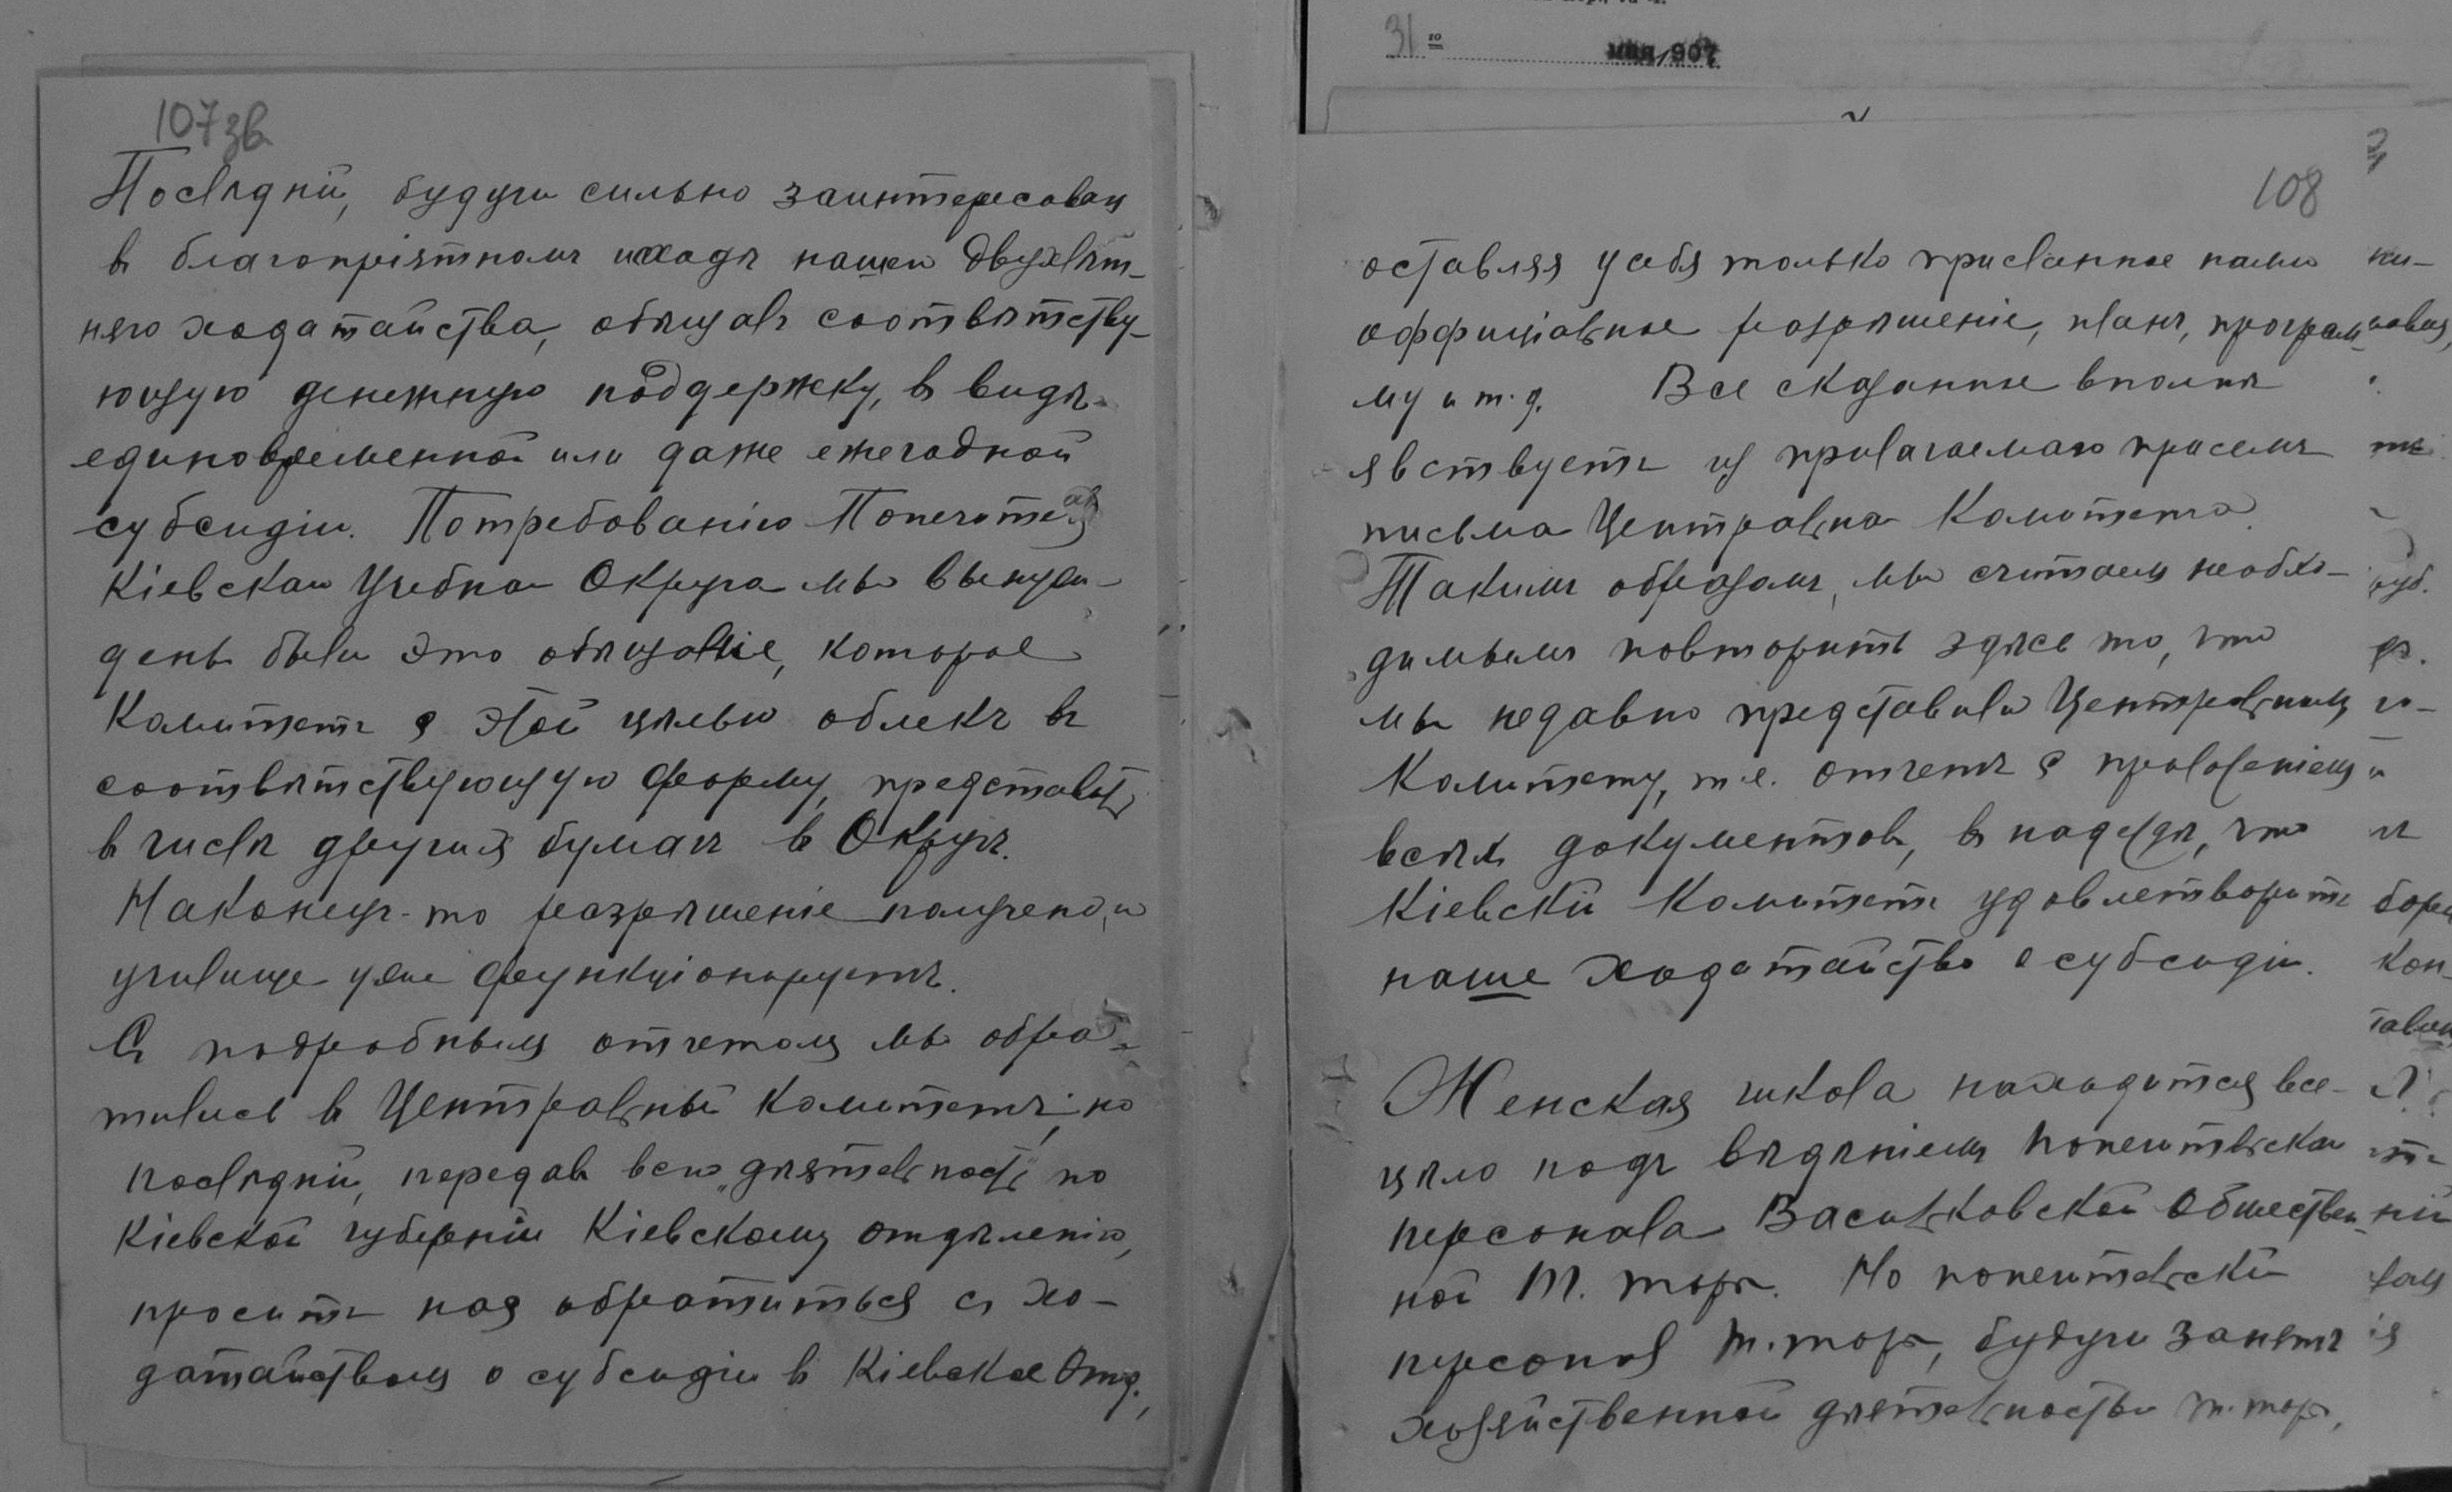 107 зв
Послѣдній, будучи сильно заинтересован
в благопріятномъ исходѣ нашего двухлѣт-
няго ходатайства, обѣщалъ соотвѣтству-
ющую денежную поддержку, в видѣ
единовременной или даже ежегодной
субсидіи. По требованію Попечителя
Кіевскаго Учебнаго Округа мы вынуж-
дены были это обѣщаніе, которое
Комитетъ с этой цѣлью облекъ въ
соотвѣтствующую форму, представить
в числѣ других бумагъ в Округъ.
Наконецъ-то разрѣшеніе получено, и
училище уже функціонируетъ.
Съ подробным отчетом мы обра-
тились в Центральный Комитетъ, но
послѣдній, передав всю дѣятельность по
Кіевской губерніи Кіевскому отдѣленію,
проситъ нас обратиться съ хо-
датайством о субсидіи в Кіевское Отд.,
31 го мая 1907
108
оставляя у себя только присланное нами
оффиціальное разрѣшеніе, планъ, програм-
му и т. д. Все сказанное вполнѣ
явствуетъ из прилагаемаго при семъ
письма Центральнаго Комитета.
Такимъ образомъ, мы считаем необхо-
димымъ повторить здѣсь то, что
мы недавно представили Центральному
Комитету, т.е. отчетъ с приложеніем
всѣхъ документов, в надеждѣ, что
Кіевскій Комитетъ удовлетворитъ
наше ходатайство о субсидіи.
Женская школа находится все-
цѣло подъ вѣдѣніем попечительскаго
персонала Васильковской Обществен-
ной Т. торы. Но попечительскій
персонал т. торы, будучи занятъ
хозяйственной дѣятельностью т. торы,